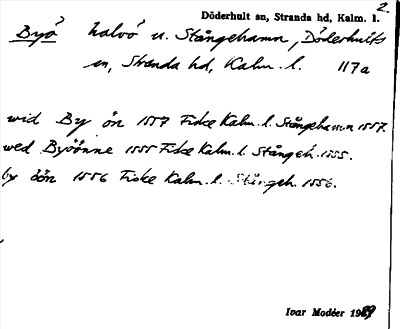 2.
Döderhult sn, Stranda hd, Kalm. l.
Byö halvö u. Stångehamn, Döderhults
sn, Stranda hd, Kalm. l. 117a
wid By ön 1557 Fiske Kalm. l. Stångehamn 1557.
wed Byöönne 1555 Fiske Kalm. l. Stångeh. 1555.
by öön 1556 Fiske Kalm. l. Stångeh. 1556.
Ivar Modéer 19